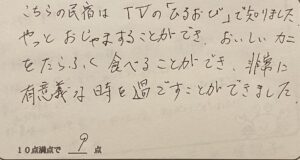 こちらの民宿は TVの「ひるおび」で知りました
やっと おじゃますることができ、おいしい カニ
をたらふく 食べることができ、非常に
有意義な時を過ごすことができました
10点満点で 9 点